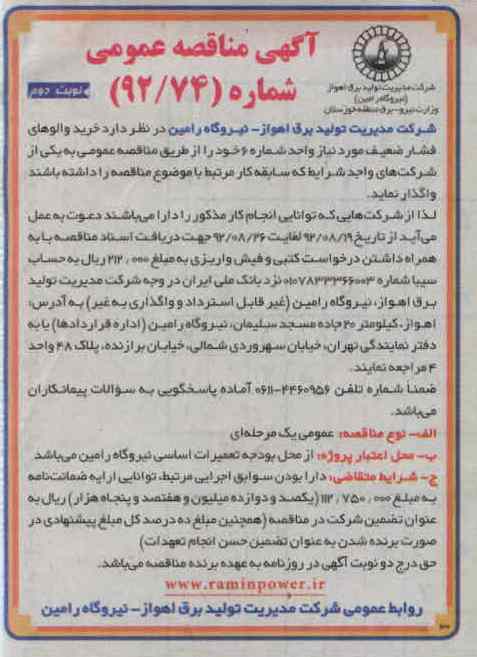 آگهی مناقصه عمومی
شماره (۹۲/۷۴)
نوبت دوم
شرکت مدیریت تولید برق اهواز
(نیروگاه رامین)
وزارت نیرو-برق منطقه خوزستان
شرکت مدیریت تولید برق اهواز- نیروگاه رامین در نظر دارد خرید والوهای
فشار ضعیف مورد نیاز واحد شماره ۶ خود را از طریق مناقصه عمومی به یکی از
شرکت‌های واجد شرایط که سابقه کار مرتبط با موضوع مناقصه را داشته باشند
واگذار نماید.
لذا از شرکت‌هایی که توانایی انجام کار مذکور را دارا می‌باشند دعوت به عمل
می‌آید از تاریخ ۹۲/۰۸/۱۹ لغایت ۹۲/۰۸/۲۶ جهت دریافت اسناد مناقصه با به
همراه داشتن درخواست کتبی و فیش واریزی به مبلغ ۲۱۲٫۰۰۰ ریال به حساب
سیبا شماره ۰۱۰۷۸۳۳۳۶۶۰۰۳ نزد بانک ملی ایران در وجه شرکت مدیریت تولید
برق اهواز، نیروگاه رامین (غیر قابل استرداد و واگذاری به غیر) به آدرس:
اهواز، کیلومتر ۲۰ جاده مسجد سلیمان، نیروگاه رامین (اداره قراردادها) یا به
دفتر نمایندگی تهران، خیابان سهروردی شمالی، خیابان برازنده، پلاک ۴۸ واحد
۴ مراجعه نمایند.
ضمناً شماره تلفن ۴۴۶۰۹۵۶-۰۶۱۱ آماده پاسخگویی به سؤالات پیمانکاران
می‌باشد.
الف- نوع مناقصه: عمومی یک مرحله‌ای
ب- محل اعتبار پروژه: از محل بودجه تعمیرات اساسی نیروگاه رامین می‌باشد
ج- شرایط متقاضی: دارا بودن سوابق اجرایی مرتبط، توانایی ارایه ضمانت‌نامه
به مبلغ ۱۱۲٫۷۵۰٫۰۰۰ (یکصد و دوازده میلیون و هفتصد و پنجاه هزار) ریال به
عنوان تضمین شرکت در مناقصه (همچنین مبلغ ده درصد کل مبلغ پیشنهادی در
صورت برنده شدن به عنوان تضمین حسن انجام تعهدات)
حق درج دو نوبت آگهی در روزنامه به عهده برنده مناقصه می‌باشد.
www.raminpower.ir
روابط عمومی شرکت مدیریت تولید برق اهواز- نیروگاه رامین